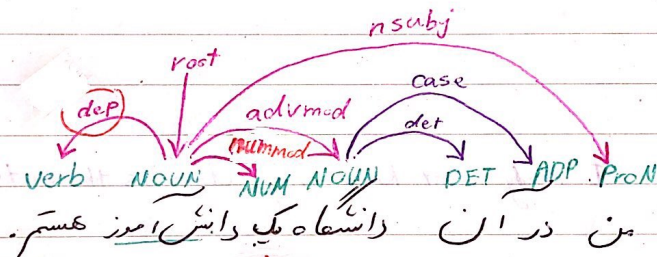 nsubj
root
case
dep advmod det
nummod
verb NOUN NUM NOUN DET ADP PRON
من در آن دانشگاه یک دانش آموز هستم.